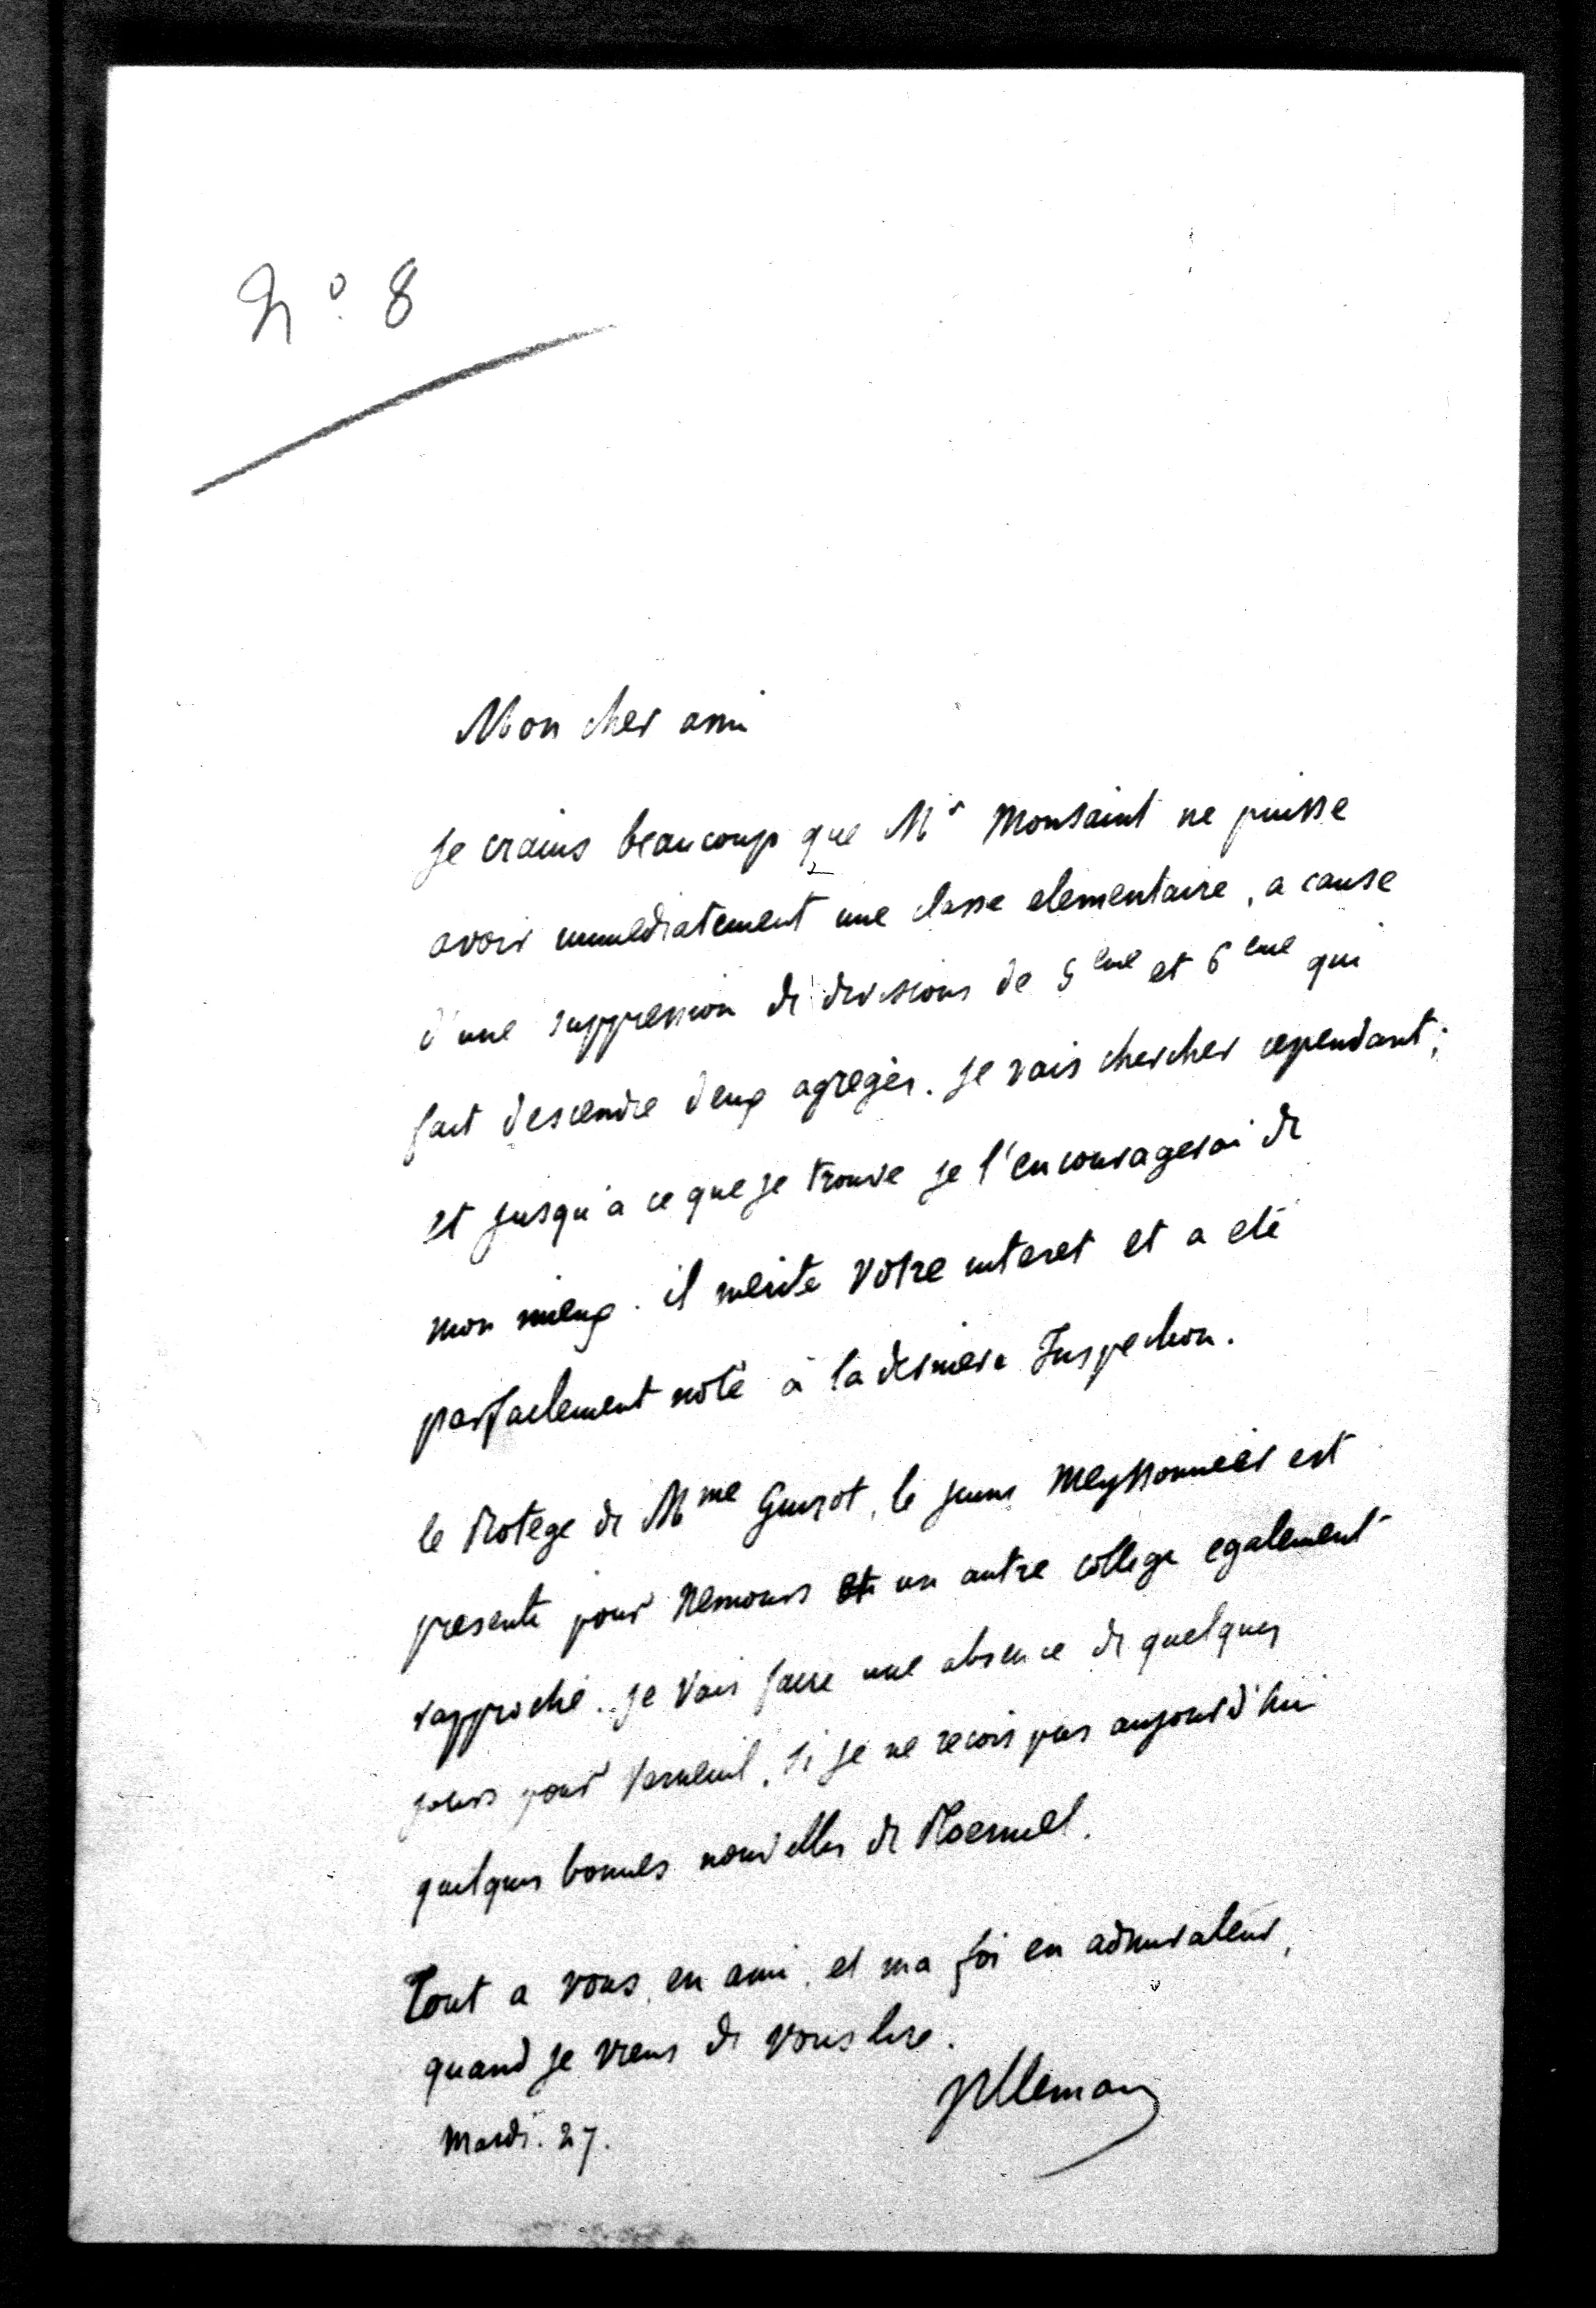 N° 8
Mon cher ami
je crains beaucoup que Mr Monsaint ne puisse
avoir immediatement une classe elementaire, a cause
d'une suppression de divisions de 5eme et 6eme qui
fait descendre deux agregés. je vais chercher cependant;
et jusqu'a ce que je trouve je l'encouragerai de
mon mieux. il merite votre interet et a eté
parfaitement noté à la derniere Inspection.
le protege de Mme Guizot, le jeune Meyssonnier est
presente pour Nemours et un autre college egalement
rapproché. je vais faire une absence de quelques
jours pour Verneuil, si je ne recois pas aujourd'hui
quelques bonnes nouvelles de Ploermel.
Tout a vous, en ami, et ma foi en admirateur,
quand je viens de vous lire.
Villemain
Mardi. 27.